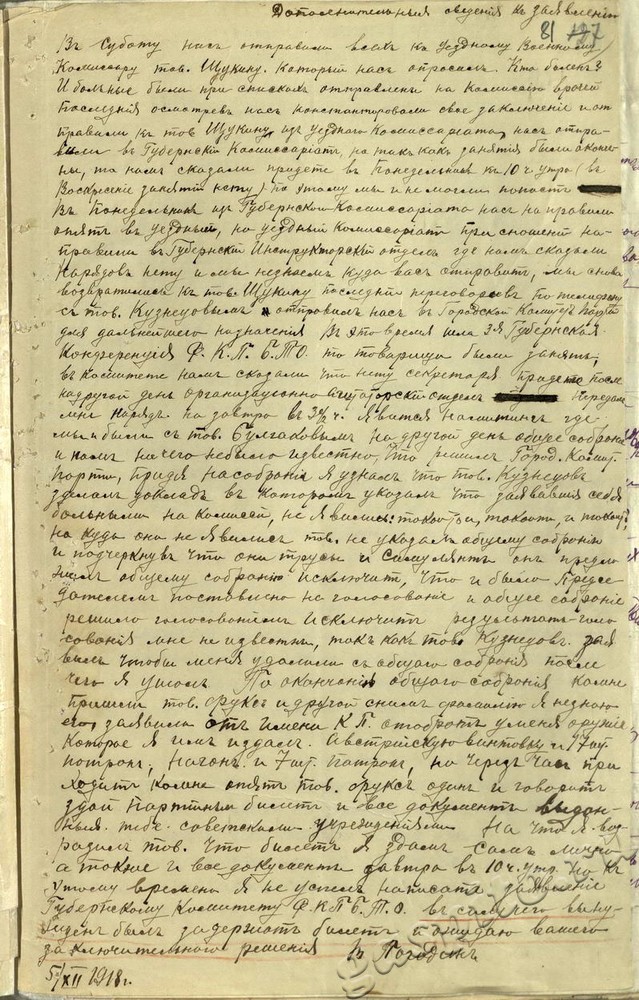 Дополнительныя сведения къ заявлению
81 127
Въ суботу насъ отправили всехъ къ уездному Военному
Комиссару тов. Щукину. Который насъ опросилъ. Кто боленъ?
И больные были при спискахъ отправлены на комисию врачей
Последния осмотревъ насъ констатировали свое заключение и от
правили къ тов Щукину, изъ уезднаго Комиссариата насъ отпра-
вили въ Губернский Комиссариатъ, но такъ какъ занятия были оконче
ны, то намъ сказали придете въ Понедельникъ къ 10 ч. утра (въ
Воскресние занятий нету) по этому мы и не могли попасть
Въ Понедельникъ изъ Губернскаго Комиссариата насъ направили
опять въ уездный, но уездный комиссариатъ при сношении на-
правили въ Губернский Инструкторский отделъ где намъ сказали
Нарядовъ нету и мы незнаемъ куда васъ отправить, мы снова
возвратились къ тов. Щукину последний переговоривъ по телефону
съ тов. Кузнецовымъ и отправилъ насъ въ Городской Комитетъ партии
для дальнейшего назначения Въ это время шла 3я Губернская
Конференция Ф. К. П. Б. Т. О. то товарищи были заняты,
въ комитете намъ сказали что нету секретаря придете после
на другой день организационно агитаторский отделъ передали
мне нарядъ. на завтра въ 3 ч. явится на митингъ где
мы и были съ тов. Булгаковымъ на другой день общее собрание
и намъ ничего небыло известно, что решилъ Город. Комит.
парти, придя на собрание я узналъ что тов. Кузнецовъ
зделалъ докладъ въ которомъ указалъ что заявившия себя
больными на комисей, не явились: такой то и, такой то, и такой то,
но куда они не явились тов. не указалъ общему собранию
и подчеркнувъ что они трусы и симулянты онъ предло
жилъ общему собранию исключить, что и было предсе
дателемъ поставлено на голосование и общее собрание
решило голосованиемъ исключить результаты голо
сования мне не известны, такъ какъ тов. Кузнецовъ. зая
вилъ чтобы меня удалили съ общаго собрания после
чего я ушолъ. По окончании общаго собрания ко мне
пришли тов. Фуксъ и другой с нимъ фамилию я незнаю
его, заявили отъ имени К. П. отобрать у меня оружие
которое я имъ издалъ. Австрийскую винтовку и 17 шт.
патрон, Наганъ и 7 шт. патрон, но черезъ часъ при
ходитъ ко мне опять тов. Фуксъ одинъ и говоритъ
здай партийный билетъ и все документы выдан-
ныя тебе советскими учреждениями На что я воз
разилъ тов. что билетъ я здамъ самъ лично
а также и все документы завтра въ 10 ч. утр. но къ
этому времени я не успелъ написать заявление
Губернскому комитету Ф. К. П. Б. Т. О. въ силу чего выну-
жденъ былъ задержать билетъ и ожидаю вашего
заключительного решения
5/XII 1918 г.